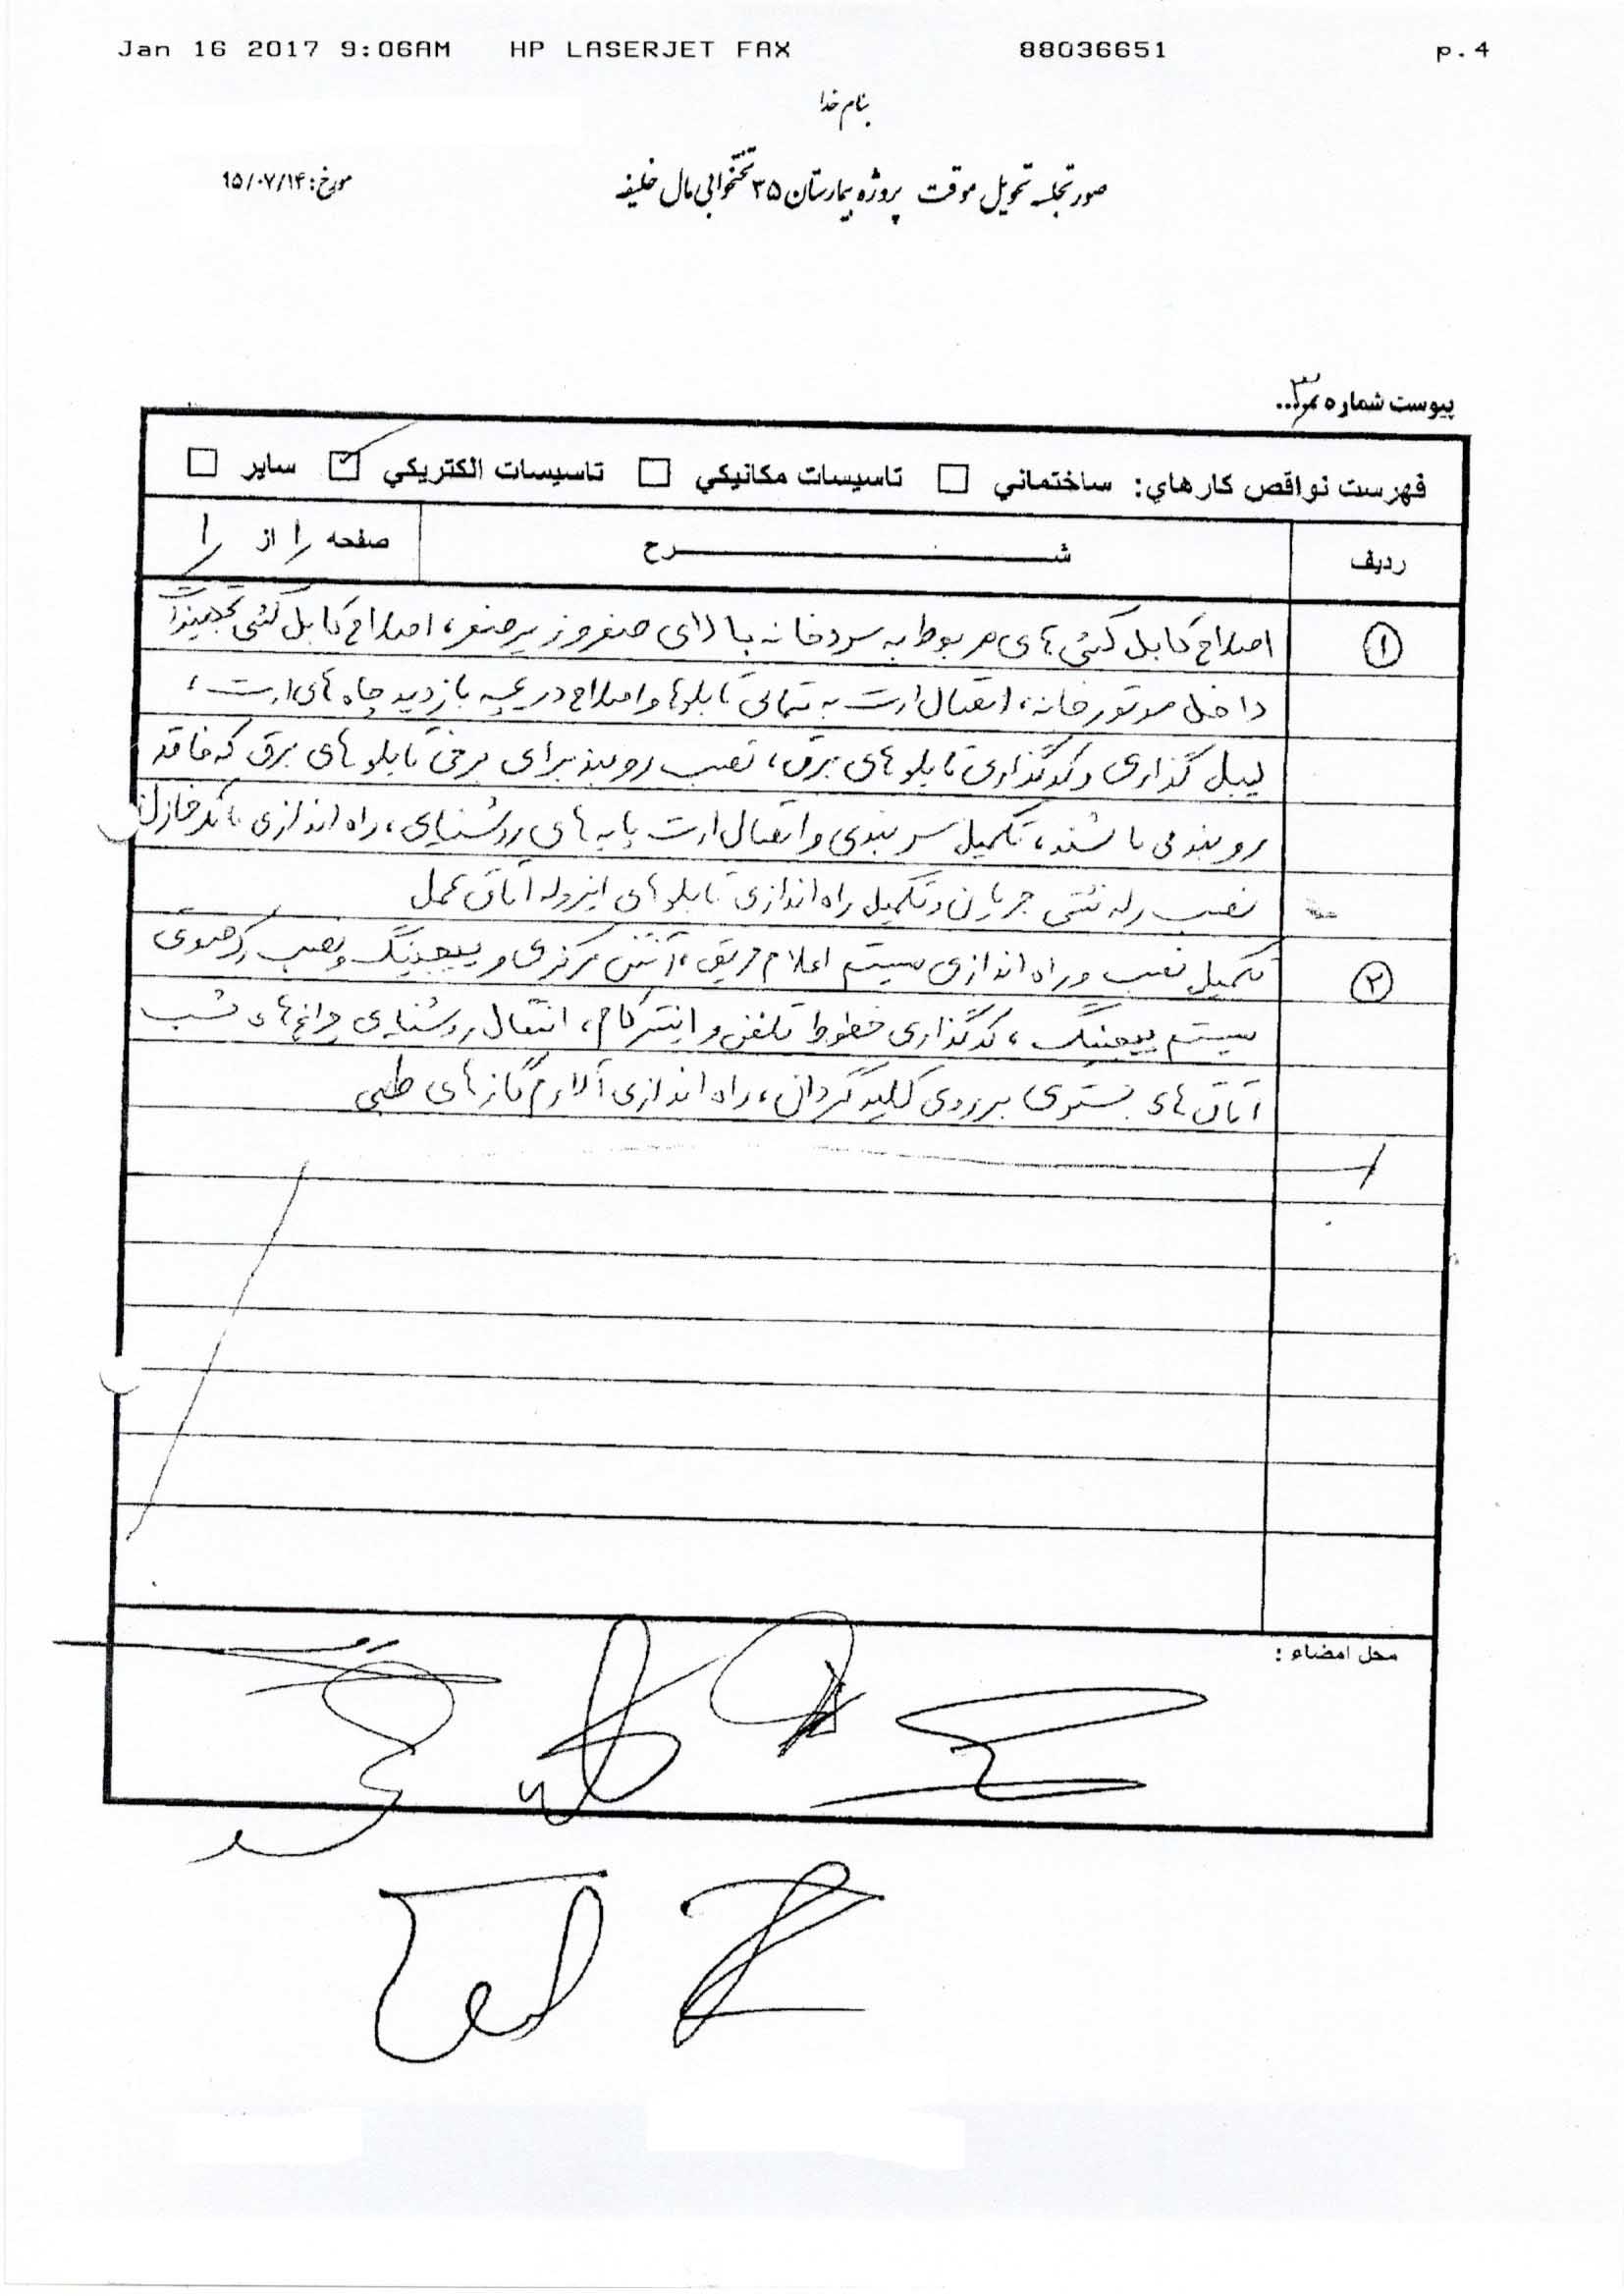 Jan 16 2017 9:06AM HP LASERJET FAX 88036651 p.4
بنام خدا
صورتجلسه تحویل موقت پروژه بیمارستان ۳۵ تختخوابی مال خلیفه
مورخ: ۹۵/۰۷/۱۴
پیوست شماره ۳
فهرست نواقص کارهای: ساختمانی □ تاسیسات مکانیکی □ تاسیسات الکتریکی ☑ سایر □
ردیف شرح صفحه ۱ از ۱
۱ اصلاح کابل کشی های مربوط به سردخانه بالای صفر و زیر صفر، اصلاح کابل کشی تجهیزات
داخل موتورخانه، اتصال ارت به تمامی تابلوها و اصلاح دریچه بازدید چاه های ارت،
لیبل گذاری و کدگذاری تابلو های برق، نصب روبند برای برخی تابلو های برق که فاقد
روبند می باشند، تکمیل سر بندی و اتصال ارت پایه های روشنایی، راه اندازی بانک خازن
نصب رله نشتی جریان و تکمیل راه اندازی تابلو های ایزوله اتاق عمل
۲ تکمیل نصب و راه اندازی سیستم اعلام حریق، آنتن مرکزی و پیجینگ و نصب رک صوتی
سیستم پیجینگ، کدگذاری خطوط تلفن و اینترکام، انتقال روشنایی چراغ های شب
اتاق های بستری بر روی کلید گردان، راه اندازی آلارم گاز های طبی
محل امضاء :